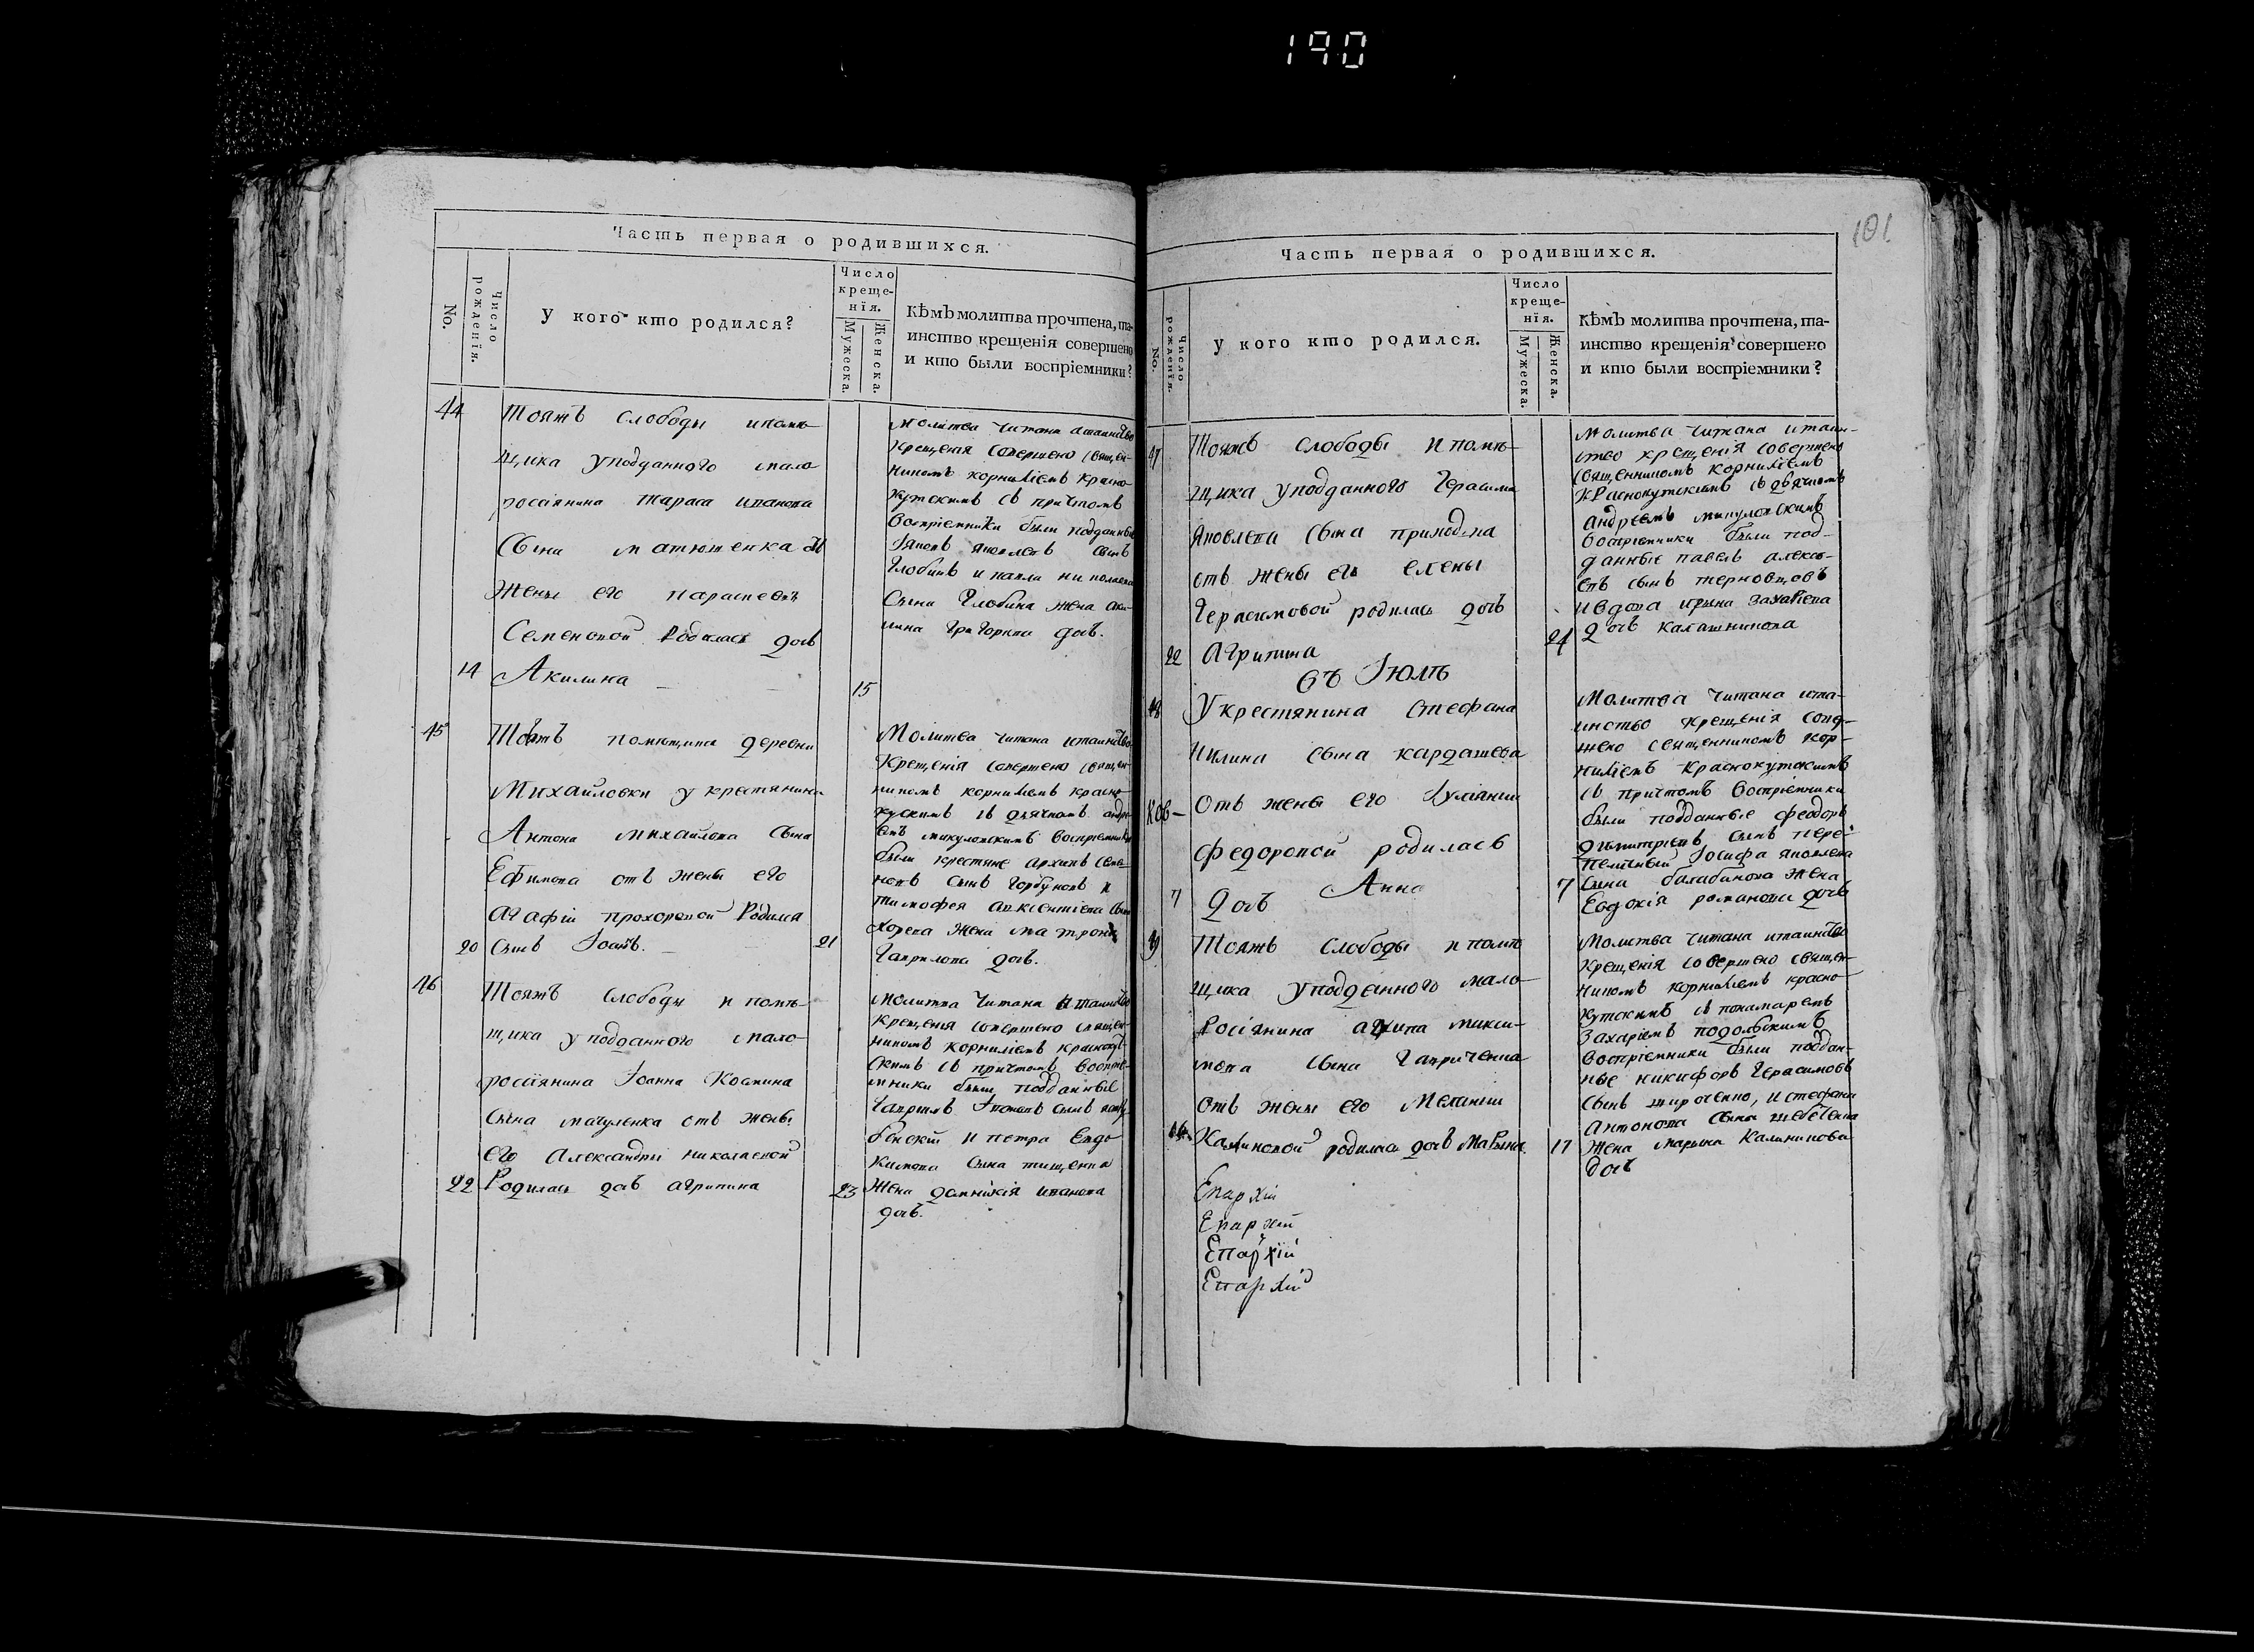 190
101
Часть первая о родившихся.
No.
Число рожденїя.
У кого кто родился?
Число
креще-
нїя.
Мужеска.
Женска.
Кѣмъ молитва прочтена, та-
инство крещенія совершено
и кто были воспріемники?
44
Тояжъ слободы ипомѣ-
щика уподданного мало
росіянина тараса иванова
Сына матюшенка
жены его параскевы
Семеновой Родилась дочь
14 Акилина
15
молитва читана
Крещенія совершено священ-
никомъ корниліемъ красно-
кутскимъ съ причтомъ
воспріемники были подданные
яковлевъ сынъ
глобинъ и павла николаева
Сына глобина жена аки-
лина григорева дочь.
45
помѣщика деревни
Михайловки у крестянина
Антона михайлова сына
Ефимова отъ жены его
агафіи прохоровой Родился
20 Сынъ Іоанъ.
21
Молитва читана итаинство
Крещенія совершено священ-
никомъ корниліемъ красно-
куцкимъ съ дьячкомъ андре-
емъ микуловскимъ воспріемники
были крестяне архипъ семе-
новъ сынъ горбуновъ и
тимофея сына
жена матрона
гаврилова дочь.
46
Тояжъ слободы и помѣ-
щика уподданного мало-
россіянина Іоанна Космина
Сына мачуленка отъ жены
его Александры николаевой
22 Родилась дочь агрипина
23
молитва читана и таинство
крещенія совершено священ-
никомъ корниліемъ краснокут-
скимъ съ причтомъ воспріе-
мники были подданные
гаврилъ сынъ
и петра Евдо-
кимова сына тищенка
жена иванова
дочь.
Часть первая о родившихся.
No.
Число рожденїя.
У кого кто родился.
Число
креще-
нїя.
Мужеска.
Женска.
Кѣмъ молитва прочтена, та-
инство крещенія совершено
и кто были воспріемники?
47
Тояжъ слободы и помѣ-
щика уподданного герасима
яковлева сына приходка
отъ жены его елены
герасимовой родилась дочь
22 агрипина
24
Молитва читана итаин-
ство крещенія совершено
священникомъ корниліемъ
краснокутскимъ съ дьячкомъ
андреемъ микуловскимъ
воспріемники были под-
данные павелъ алексѣ-
евъ сынъ терновцовъ
ирина захаріева
дочь калашникова
въ Іюлѣ
48
У крестянина стефана
Нилина сына кардашева
Ков-
отъ жены его Іуліаніи
федоровой родилась
7 дочь Анна
7
Молитва читана ита-
инство крещенія совер-
шено священникомъ кор-
ниліемъ краснокутскимъ
съ причтомъ воспріемники
были подданные феодоръ
димитріевъ сынъ пере-
Іосифа яковлева
сына балабанова жена
Евдокія романова дочь
49
Тояжъ слободы и помѣ
щика уподданного мало-
Росіянина архипа макси-
мова сына гавриченка
отъ жены его Меланіи
16 Калиновой родилась дочь Марина
17
Молитва читана итаинство
крещенія совершено священ-
никомъ корниліемъ красно-
кутскимъ съ понамаремъ
Захаріемъ подольскимъ
воспріемники были поддан-
ные никифоръ герасимовъ
сынъ широченко, и стефана
антонова сына шебеченка
жена марина Калиникова
дочь
Епархіи
Епархіи
Епархїи
Епархіи